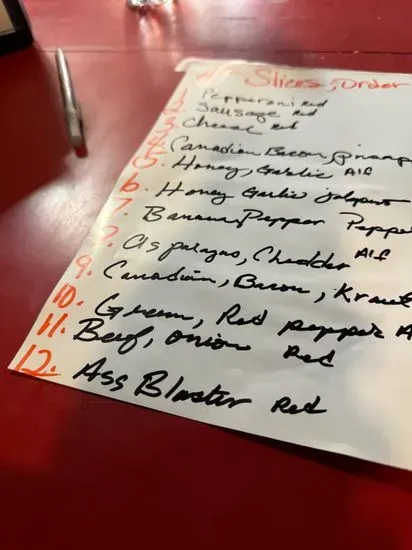 Slices, Order
1. Pepperoni Red
2. Sausage Red
3. Cheese Red
4. Canadian Bacon,
5. Honey, Garlic Alf
6. Honey Garlic jalapeno
7. Banana Pepper Peppe
8. Asparagus, Chedder Alf
9. Canadian, Bacon, Kraut
10. Green, Red pepper A
11. Beef, onion Red
12. Ass Blaster Red